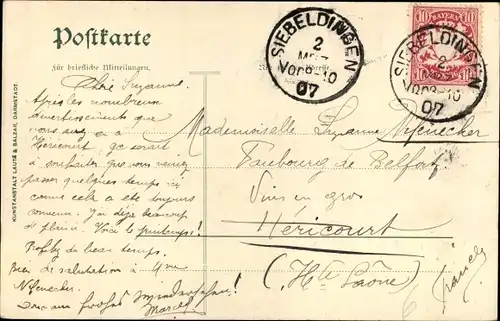 Postkarte
Für briefliche Mitteilungen.
SIEBELDINGEN
2
MRZ
Vor 9-10
07
BAYERN
10 10
SIEBELDINGEN
2
Vor 9-10
07
KUNSTANSTALT LAUTZ & BALZAR, DARMSTADT.
Chère Suzanne.
Après les nombreux
divertissements que
vous avez eu à
Héricourt, ce serait
à souhaiter que vous veniez
passer quelques temps ici
comme cela a été toujours
convenu. J'ai déjà beaucoup
de plaisir. Voici le printemps!
Profitez du beau temps.
Bien de salutation à Mme
auf frohes Wiedersehen!
Marcel
Mademoiselle Suzanne
Faubourg de Belfort
Vins en gros
Héricourt
(Hte Saône)
France